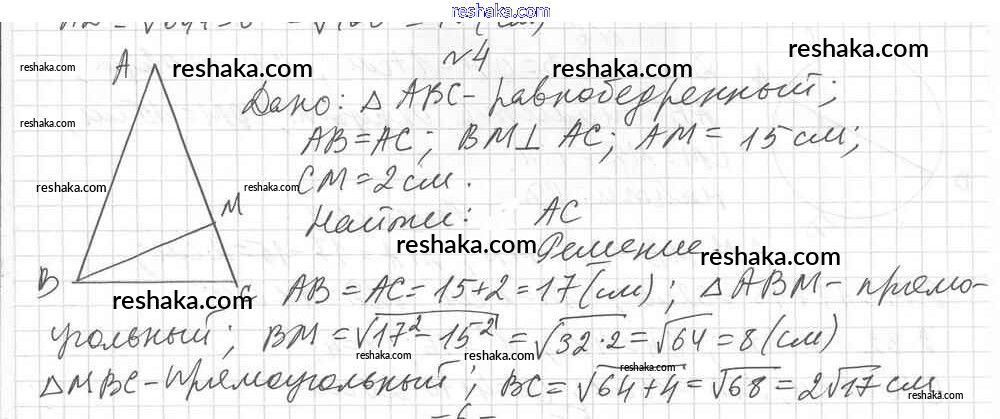 reshaka.com
№4
A
reshaka.com reshaka.com reshaka.com reshaka.com
Дано: △ ABC - равнобедренный;
reshaka.com
AB = AC; BM ⊥ AC; AM = 15 см;
reshaka.com reshaka.com reshaka.com
CM = 2 см.
M
Найти: AC
reshaka.com reshaka.com
Решение.
B C
reshaka.com
AB = AC = 15 + 2 = 17 (см); △ ABM - прямо-
угольный; BM = √17² - 15² = √32·2 = √64 = 8 (см)
reshaka.com reshaka.com
△ MBC - прямоугольный; BC = √64 + 4 = √68 = 2√17 см.
reshaka.com reshaka.com reshaka.com
- 6 -